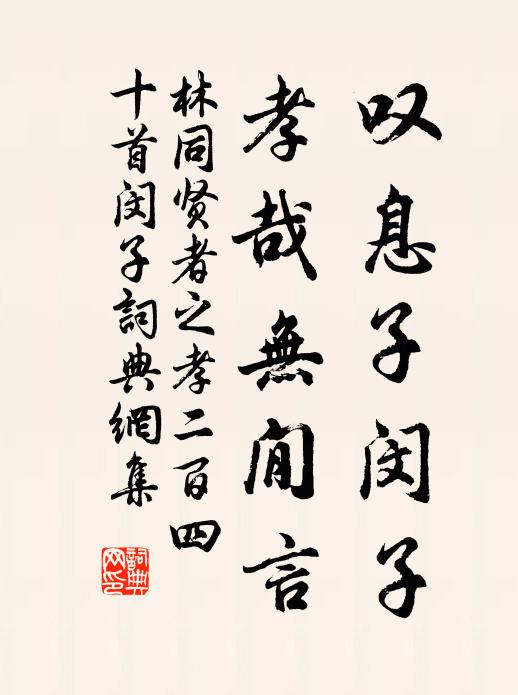 叹息子闵子
孝哉無間言
林同贤者之孝二百四
十首闵子詞典網集
詞典网印